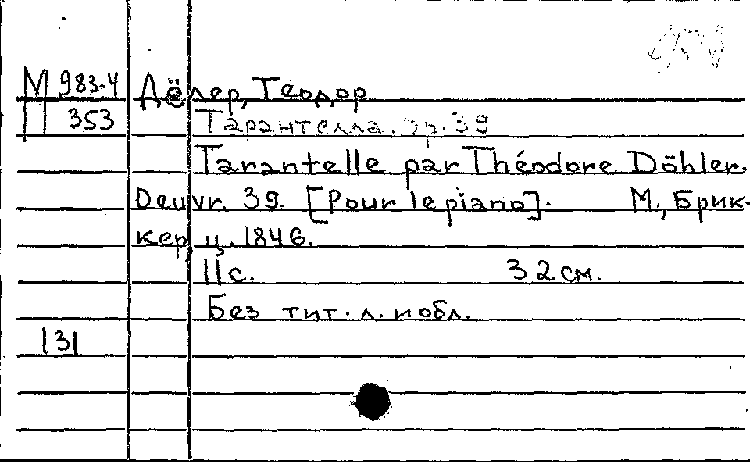 М 983-4 Дёлер, Теодор
353 Тарантелла. Ор. 39
Tarantelle par Théodore Döhler.
Oeuvr. 39. [Pour le piano]. М., Брик-
кер, ц. 1846.
11 с. 32 см.
Без тит. л. и обл.
131